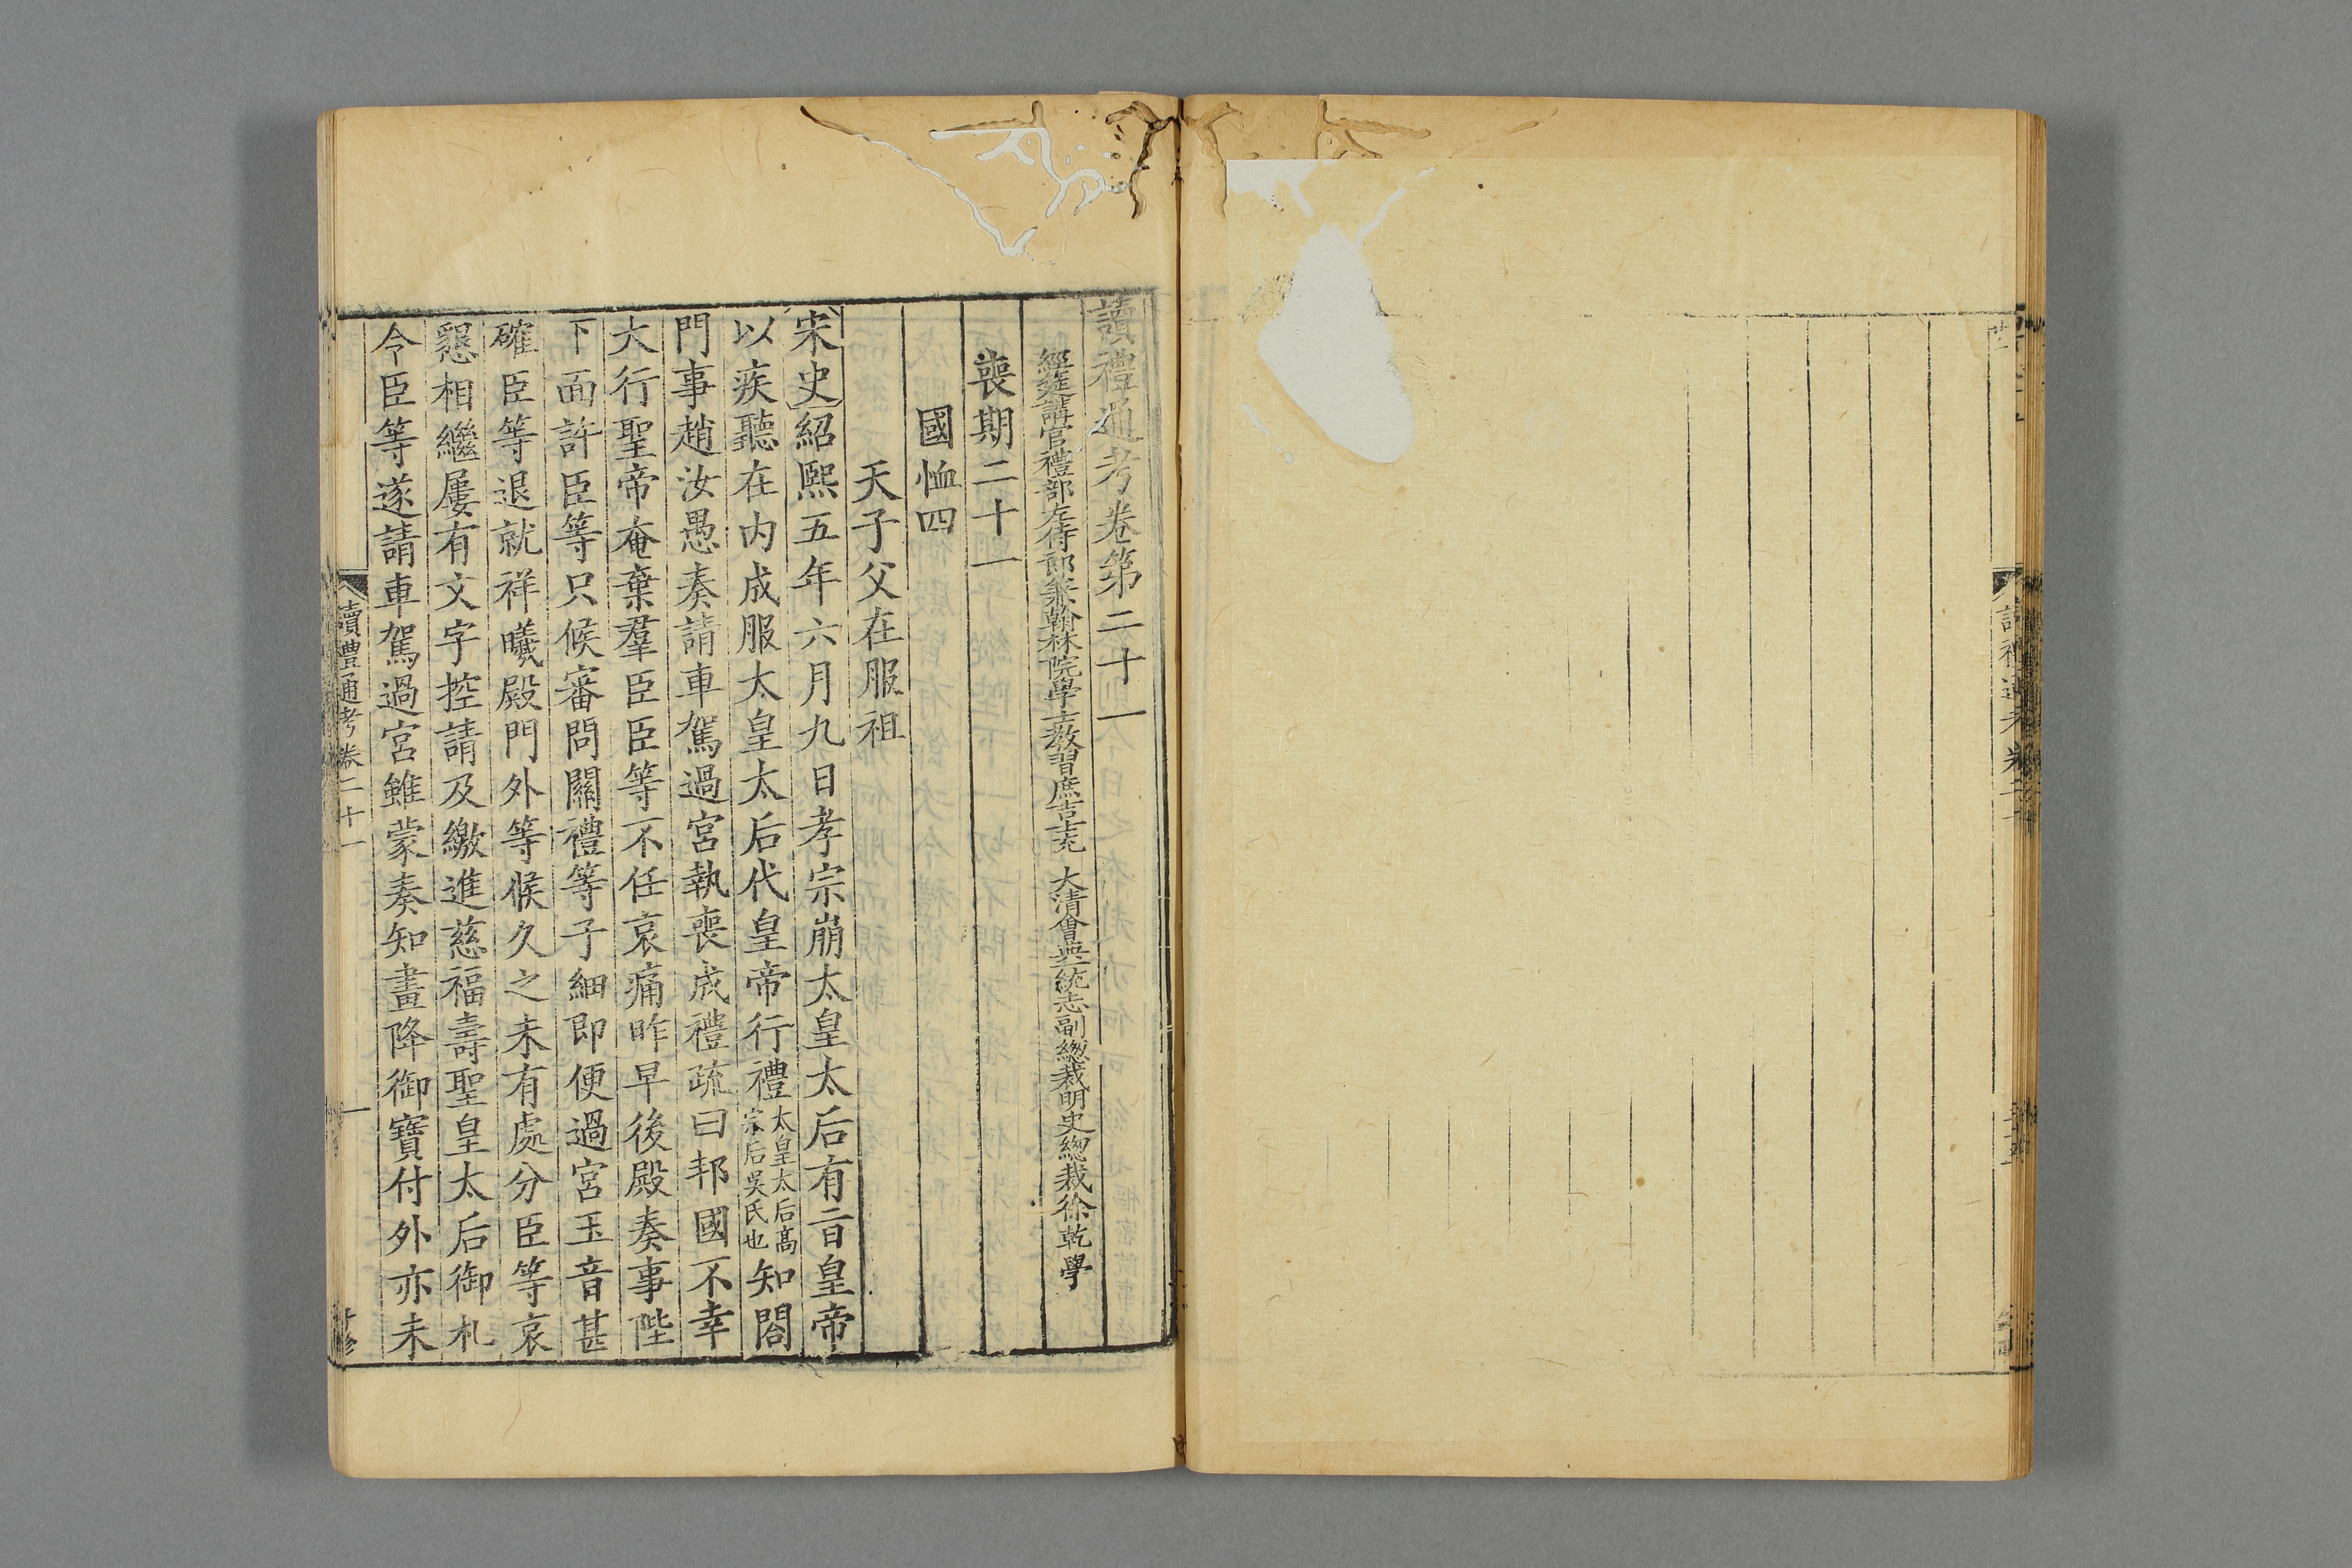 讀禮通考卷第二十一
經筵講官禮部左侍郎兼翰林院學士教習庶吉士充 大清會典一統志副總裁明史總裁徐乾學
喪期二十一
國恤四
天子父在服祖
宋史紹熙五年六月九日孝宗崩太皇太后有旨皇帝
以疾聽在内成服太皇太后代皇帝行禮太皇太后高宗后吳氏也知閤
門事趙汝愚奏請車駕過宮執喪成禮疏曰邦國不幸
大行聖帝奄棄羣臣臣等不任哀痛昨早後殿奏事陛
下面許臣等只候審問關禮等子細即便過宮玉音甚
確臣等退就祥曦殿門外等候久之未有處分臣等哀
懇相繼屢有文字控請及繳進慈福壽聖皇太后御札
令臣等遂請車駕過宮雖蒙奏知畫降御寶付外亦未
讀禮通考卷二十一
一